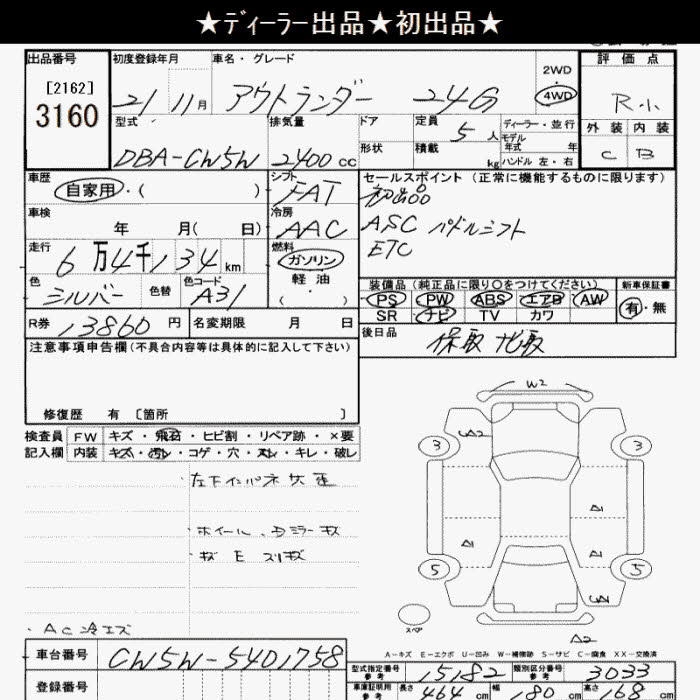 ★ディーラー出品★初出品★
出品番号 初度登録年月 車名・グレード 評価点
[2162]
3160
21 11月 アウトランダー 24G 2WD 4WD R小
型式 排気量 ドア 定員 5人 ディーラー・並行 外装 内装
モデル年式 年
DBA-CW5W 2400cc 形状 積載 kg ハンドル 左・右 C B
車歴 シフト セールスポイント (正常に機能するものに限ります)
自家用・( ) FAT 初出品
車検 冷房
年 月( 日) AAC ASC パドルシフト
ETC
走行 燃料
6万4千134km ガソリン
軽油
・( )
色 色替 色コード
シルバー A31
装備品 (純正品に限り〇をつけてください) 新車保証書
PS PW ABS エアB AW 有・無
SR ナビ TV カワ
R券 13860円 名変期限 月 日
後日品 保取 ナビ取
注意事項申告欄(不具合内容等は具体的に記入して下さい)
修復歴 有 〔箇所 〕
検査員 FW キズ・飛石・ヒビ割・リペア跡・×要
記入欄 内装 キズ・汚レ・コゲ・穴・スレ・キレ・破レ
W2
A2
3 3
A1
A1 A1
5 5
左下インパネサ
ホイール、Dミラーキズ
キズ E スリキズ
スペア
A2
・AC冷エズ
A-キズ E-エクボ U-凹み W-補修跡 S-サビ C-腐食 XX-交換済
車台番号 CW5W-5401758
型式指定番号 参考 15182 類別区分番号 参考 3033
登録番号
車庫証明用 参考 長さ 464cm 幅 180cm 高さ 168cm